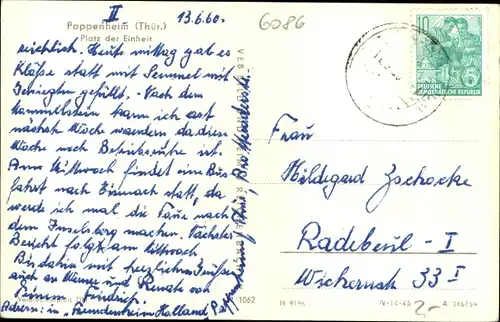 II
13.6.60.
6086
Pappenheim (Thür.)
Platz der Einheit
reichlich. Heute mittag gab es
Klöße statt mit Semmel mit
gefüllt. Nach dem
kann ich erst
nächste Woche wandern da diese
Woche noch Betriebsruhe ist.
Am Mittwoch findet ein Bus
fahrt nach Eisenach statt, da
werde ich mal die Tour nach
dem Inselsberg machen. Nächster
Bericht folgt am Mittwoch
Bis dahin mit herzlichen Grüßen
auch an und Renate von
Friedrich.
Adresse: in "Fremdenheim Holland
10
DEUTSCHE
DEMOKRATISCHE REPUBLIK
Frau
Hildegard Zschocke
Radebeul - I
Wichernstr. 33 I
1062
H 9196
IV-14-45
2-
A 216/59